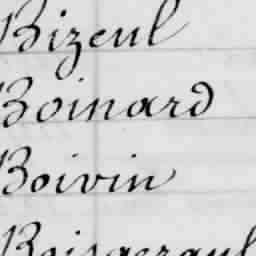 Bizeul
Boinard
Boivin